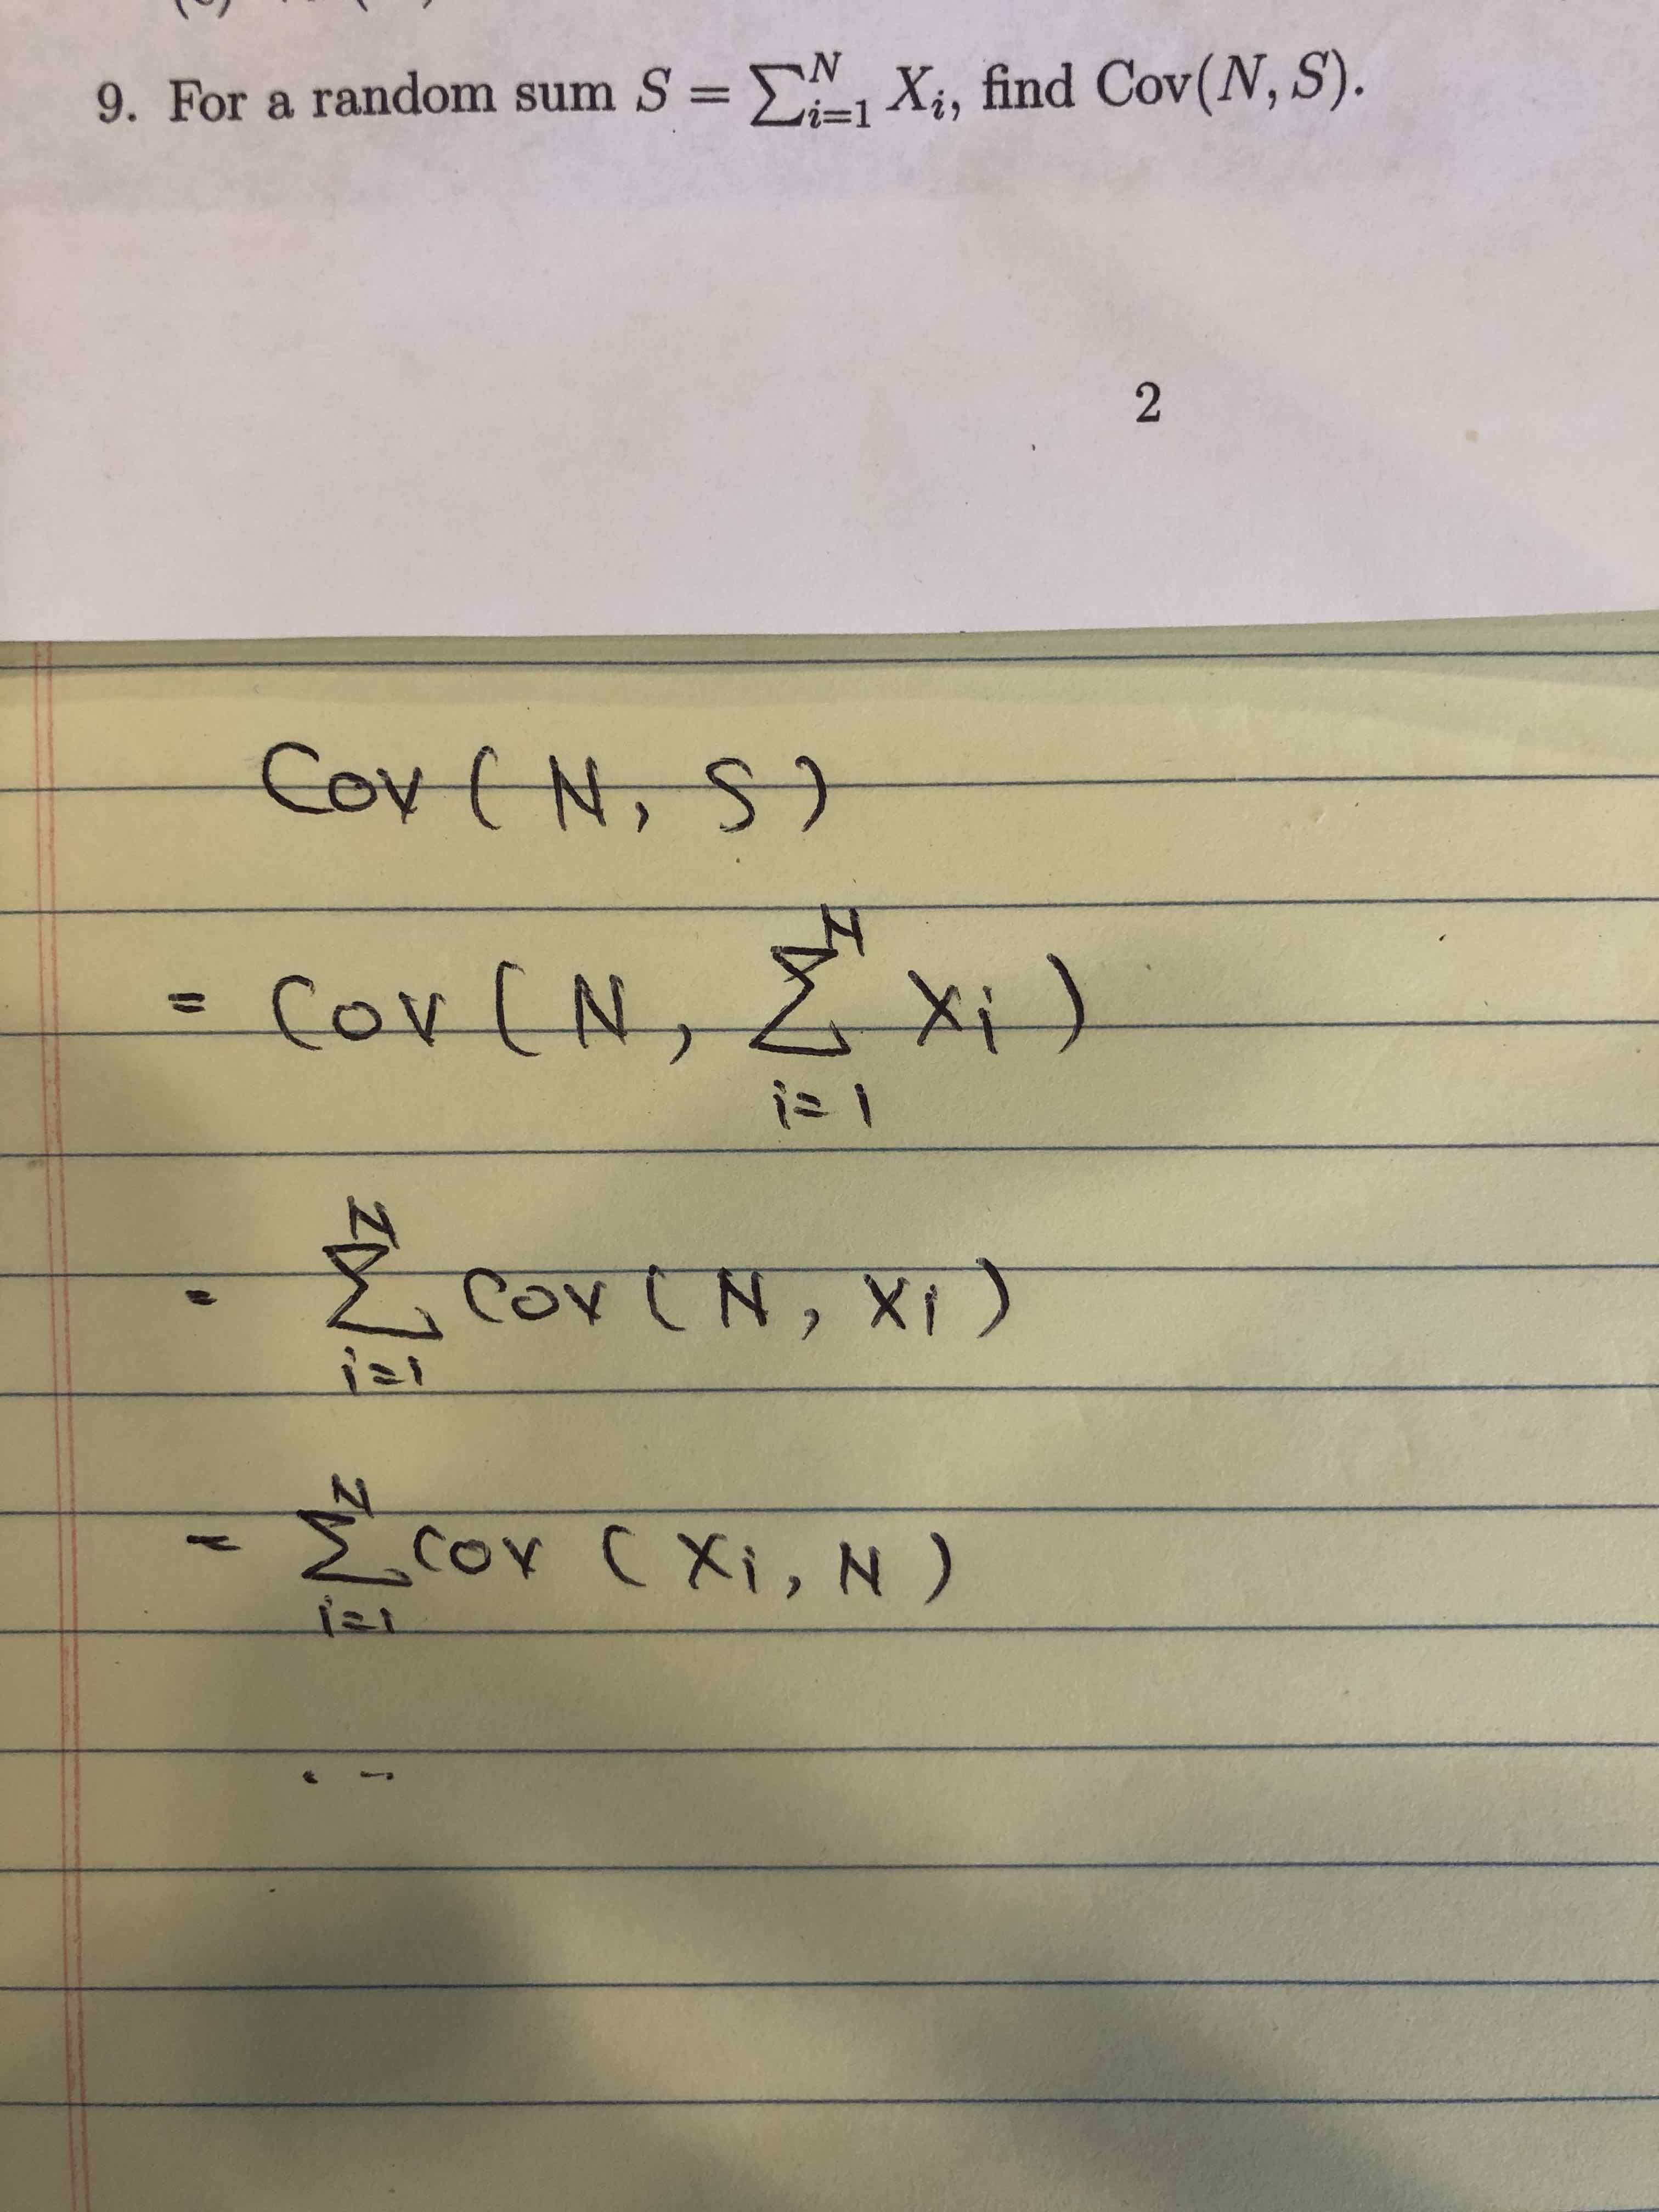 9. For a random sum S = ∑_{i=1}^{N} X_i, find Cov(N, S).
2
Cov ( N, S )
= Cov ( N, ∑_{i=1}^{N} X_i )
= ∑_{i=1}^{N} Cov ( N, X_i )
= ∑_{i=1}^{N} Cov ( X_i, N )